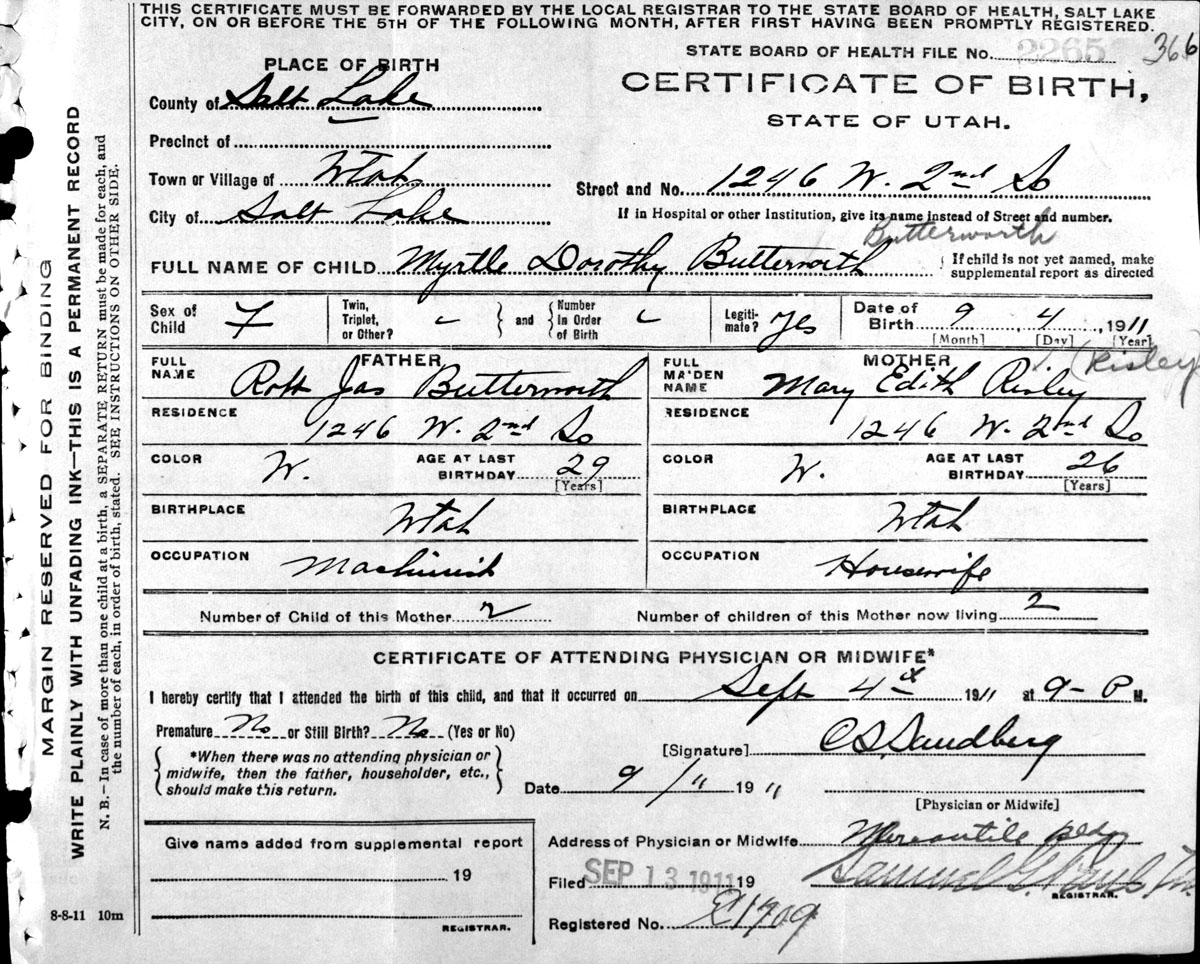 THIS CERTIFICATE MUST BE FORWARDED BY THE LOCAL REGISTRAR TO THE STATE BOARD OF HEALTH, SALT LAKE
CITY, ON OR BEFORE THE 5TH OF THE FOLLOWING MONTH, AFTER FIRST HAVING BEEN PROMPTLY REGISTERED.
STATE BOARD OF HEALTH FILE No. 2265 366
PLACE OF BIRTH
CERTIFICATE OF BIRTH,
STATE OF UTAH.
County of Salt Lake
Precinct of
Town or Village of Utah
Street and No. 1246 W. 2nd So
City of Salt Lake
If in Hospital or other Institution, give its name instead of Street and number.
Butterworth
FULL NAME OF CHILD Myrtle Dorothy Butterworth
If child is not yet named, make
supplemental report as directed
Sex of Child F
Twin, Triplet, or Other?
and
Number In Order of Birth
Legiti-mate? Yes
Date of Birth 9 4, 1911
[Month] [Day] [Year]
FATHER
FULL NAME Robt Jas Butterworth
MOTHER
FULL MAIDEN NAME Mary Edith Risley
(Risley)
RESIDENCE 1246 W. 2nd So
RESIDENCE 1246 W. 2nd So
COLOR W. AGE AT LAST BIRTHDAY 29 [Years]
COLOR W. AGE AT LAST BIRTHDAY 26 [Years]
BIRTHPLACE Utah
BIRTHPLACE Utah
OCCUPATION Machinist
OCCUPATION Housewife
Number of Child of this Mother 2
Number of children of this Mother now living 2
CERTIFICATE OF ATTENDING PHYSICIAN OR MIDWIFE*
I hereby certify that I attended the birth of this child, and that it occurred on Sept 4th 1911 at 9- P M.
Premature No or Still Birth? No (Yes or No)
*When there was no attending physician or
midwife, then the father, householder, etc.,
should make this return.
[Signature] C S Sandberg
Date 9/11 1911
[Physician or Midwife]
Give name added from supplemental report
19
REGISTRAR.
Address of Physician or Midwife Mercantile Bldg
Filed SEP 13 1911 19
Samuel G.
REGISTRAR.
Registered No. 1709
8-8-11 10m
MARGIN RESERVED FOR BINDING
WRITE PLAINLY WITH UNFADING INK—THIS IS A PERMANENT RECORD
N. B.—In case of more than one child at a birth, a SEPARATE RETURN must be made for each, and
the number of each, in order of birth, stated. SEE INSTRUCTIONS ON OTHER SIDE.